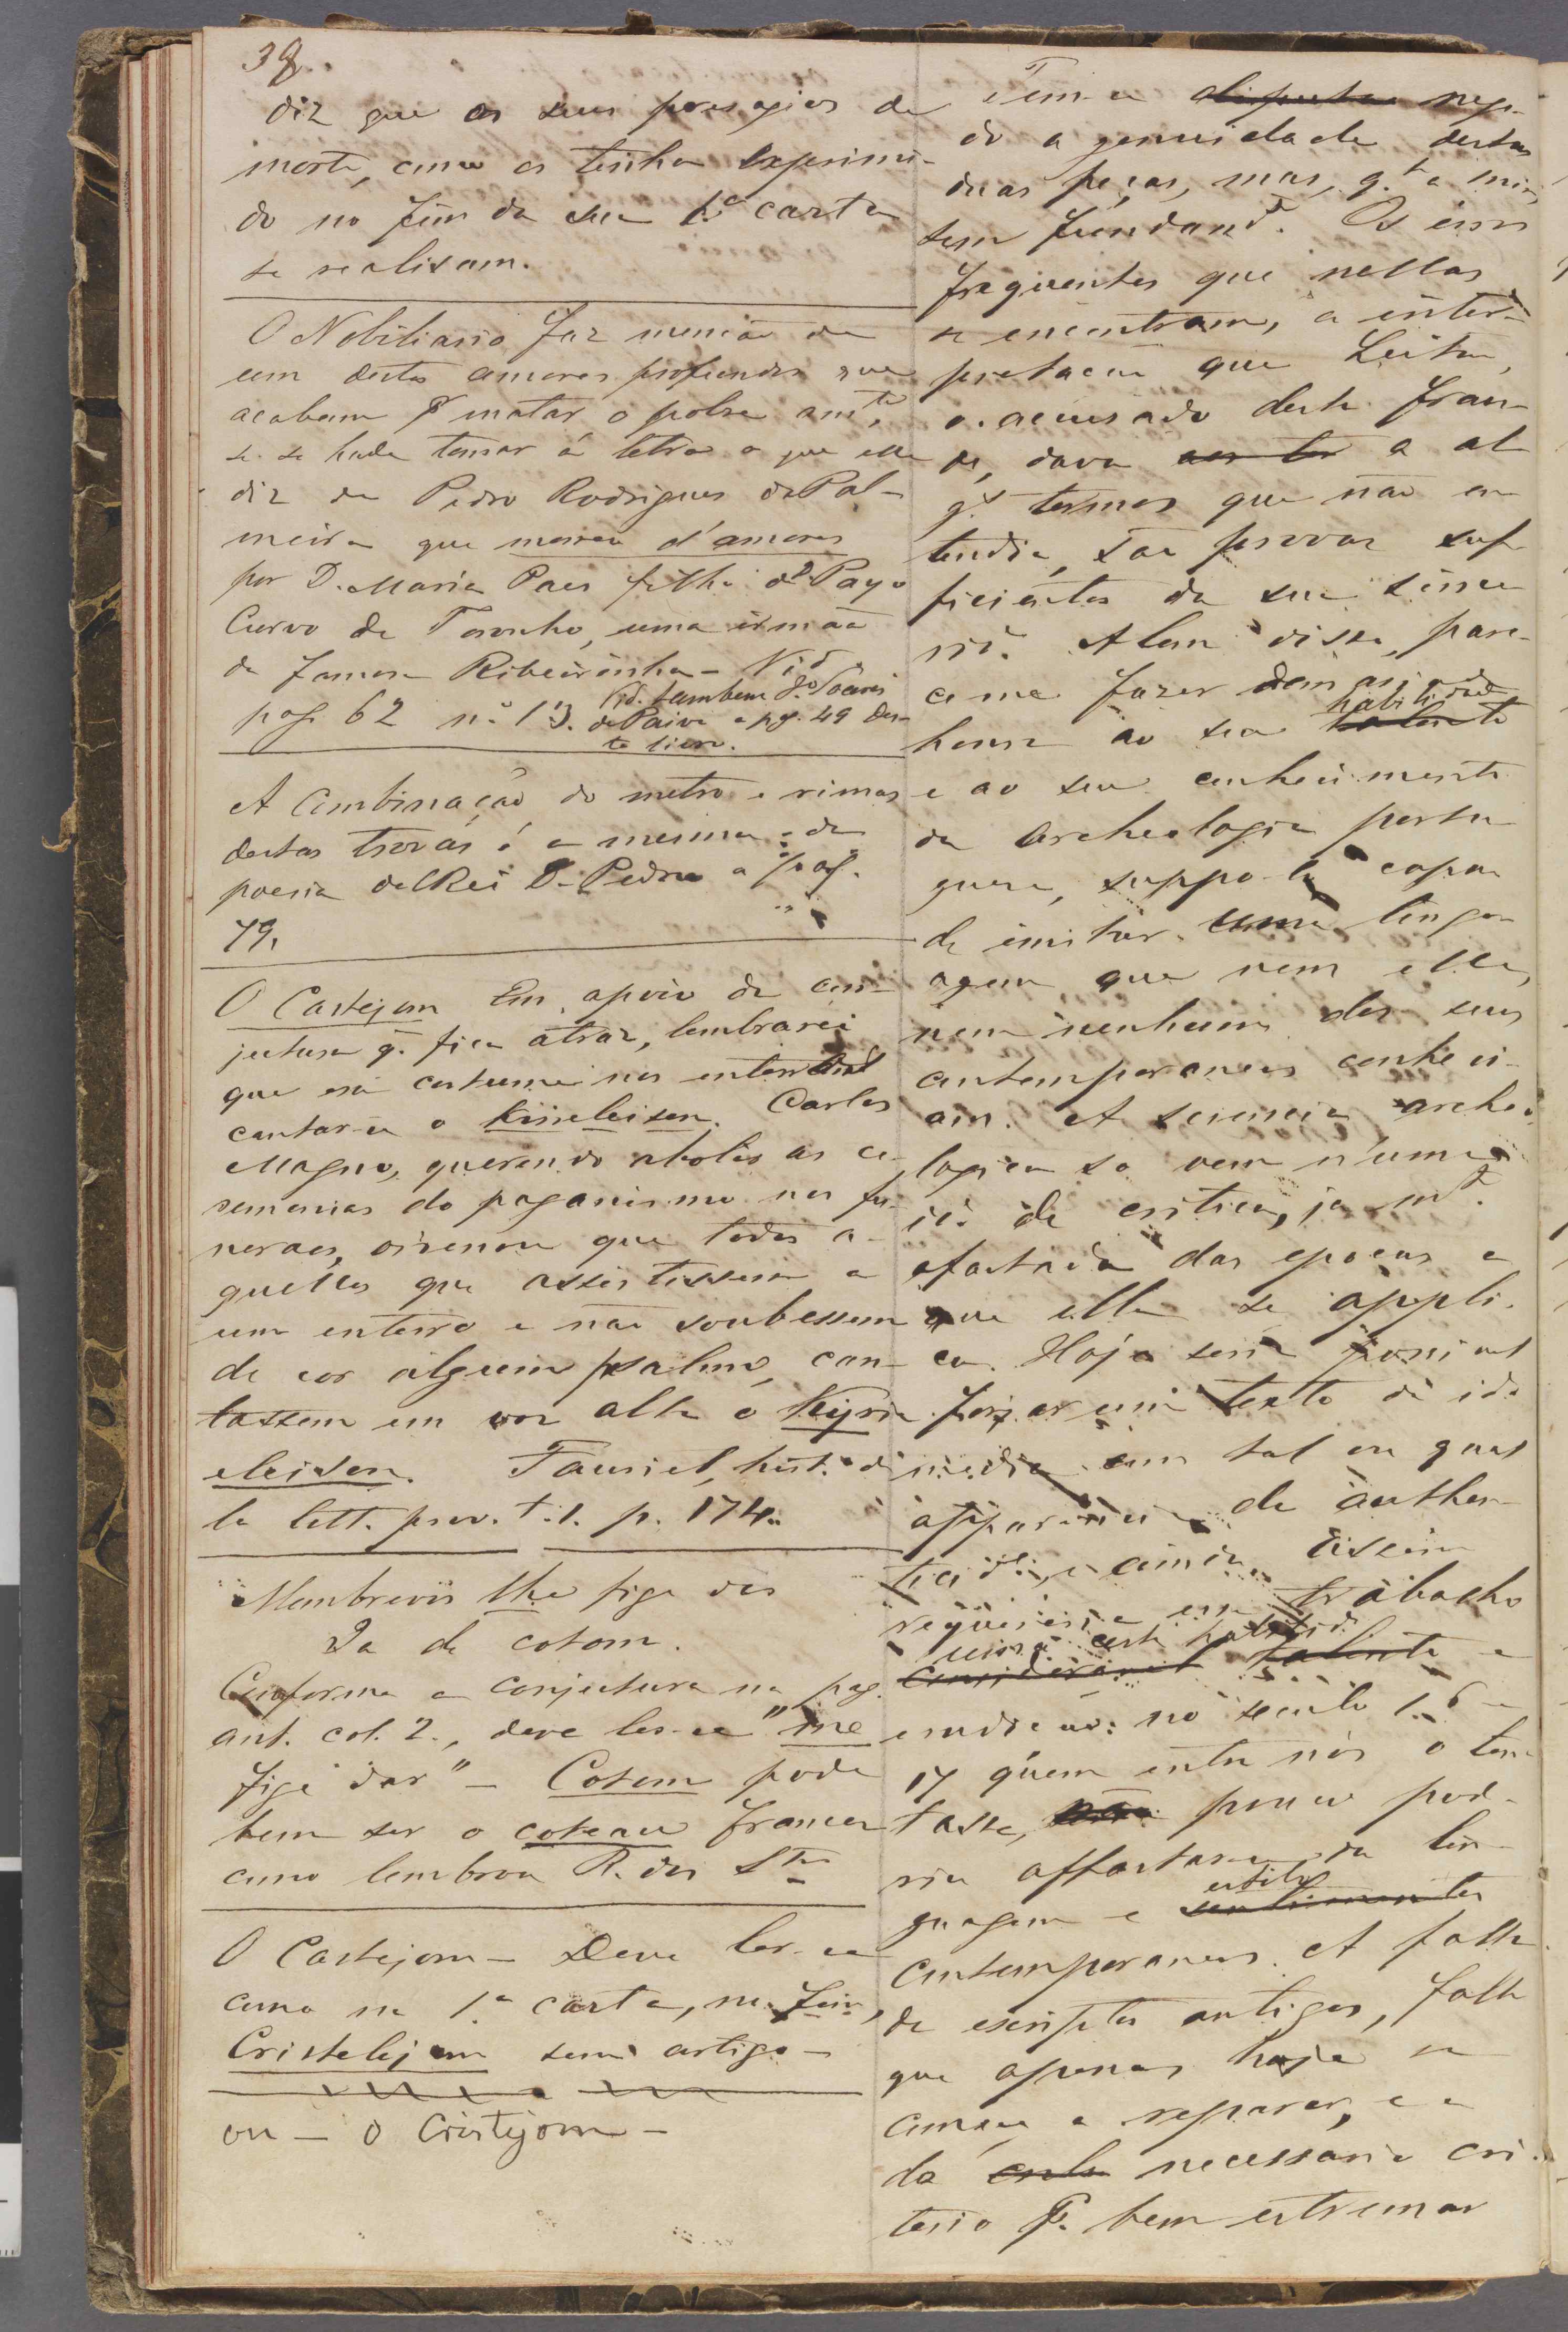 38.
diz que os seus presagios de
morte, como os tinha exprimi-
do no fim da sua 1.ª carta
se realisam.
O Nobiliario faz menção de
um destes amores profundos que
acabam por matar o pobre am.te,
se se hade tomar á letra o que elle
diz de Pedro Rodrigues de Pal-
meira que morreu d'amores
por D. Maria Paes filha de Payo
Curvo de Toronho, uma irmãa
da famosa Ribeirinha - Vid.
pag. 62 n.º 13. Vid. tambem J.º Soares
de Paiva a pg. 49 des-
te livro.
A combinação do metro e rimas
destas trovas é a mesma da
poesia delRei D. Pedro a pag.
79.
O Castejom Em apoio da con-
jectura q. fica atraz, lembrarei
que era costume nos enterros
cantar-se o Kirieleison. Carlos
Magno, querendo abolir as ce-
remonias do paganismo nos fu-
neraes, ordenou que todos a-
quelles que assistissem a
um enterro e não soubessem
de cor algum psalmo, can-
tassem em voz alta o Kyrie
eleison. Fauriel, hist. de
la litt. prov. t. 1. p. 174.
Membrevos the fige des
Da de cotom.
Conforme a conjectura na pag.
ant. col. 2., deve ler-se "me
fige dar" - Cotom pode
bem ser o coteau francez
como lembrou R. dos S.tos
O Castejom - Deve ler-se
como na 1.ª carta, no fim,
Cristelejom sem artigo -
ou - O Cristejom -
Tem-se disputado nega-
do a genuidade destas
duas peças, mas, q.to a mim,
sem fundam.to. Os erros
frequentes que nellas
se encontram, a inter-
pretação que Leitão,
o accusado desta frau-
de, dava aos ter a al
g.s termos que não en
tendia, são provas suf
ficientes da sua since
rid.e. Alem disso, pare-
ce me fazer demasiada
honra ao seu talento habilidade
e ao seu conhecimento
da archeologia portu
gueza, suppo-lo capaz
de imitar uma lingoa
agem que nem elle,
nem nenhum dos seus
contemporaneos conheci-
am. A sciencia archeo
logica so vem n'uma
id.e de critica, ja m.to
afastada das epocas a
que ella se appli-
ca. Hoje seria possivel
forjar um texto da id.e
media com tal ou qual
apparencia de authen-
ticid.e, e ainda assim
requereria esse trabalho
consideravel talento uma certa habilid.e e
erudição: no seculo 16 e
17 quem entre nós o ten
tasse, não pouco pod-
ria affastar-se da lin-
guagem e sentimentos estilo
contemporaneos. A falta
de escriptos antigos, falta
que apenas hoje se
começa a reparar, e a
da necessaria cri-
terio p.ª bem estremar